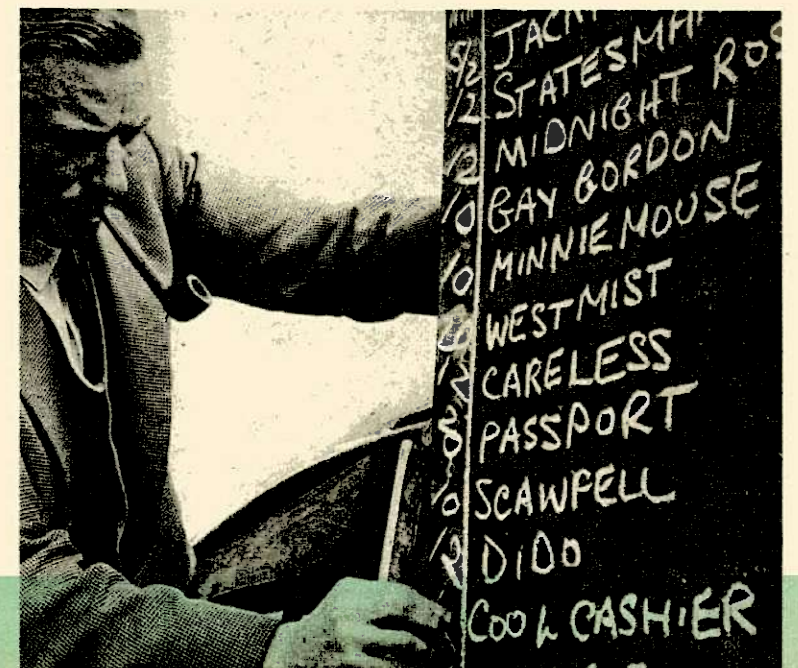 5/2 JACK
/2 STATESMA
/2 MIDNIGHT ROS
/0 GAY GORDON
/0 MINNIE MOUSE
WESTMIST
CARELESS
PASSPORT
/0 SCAWFELL
/2 DIDO
COOL CASHIER